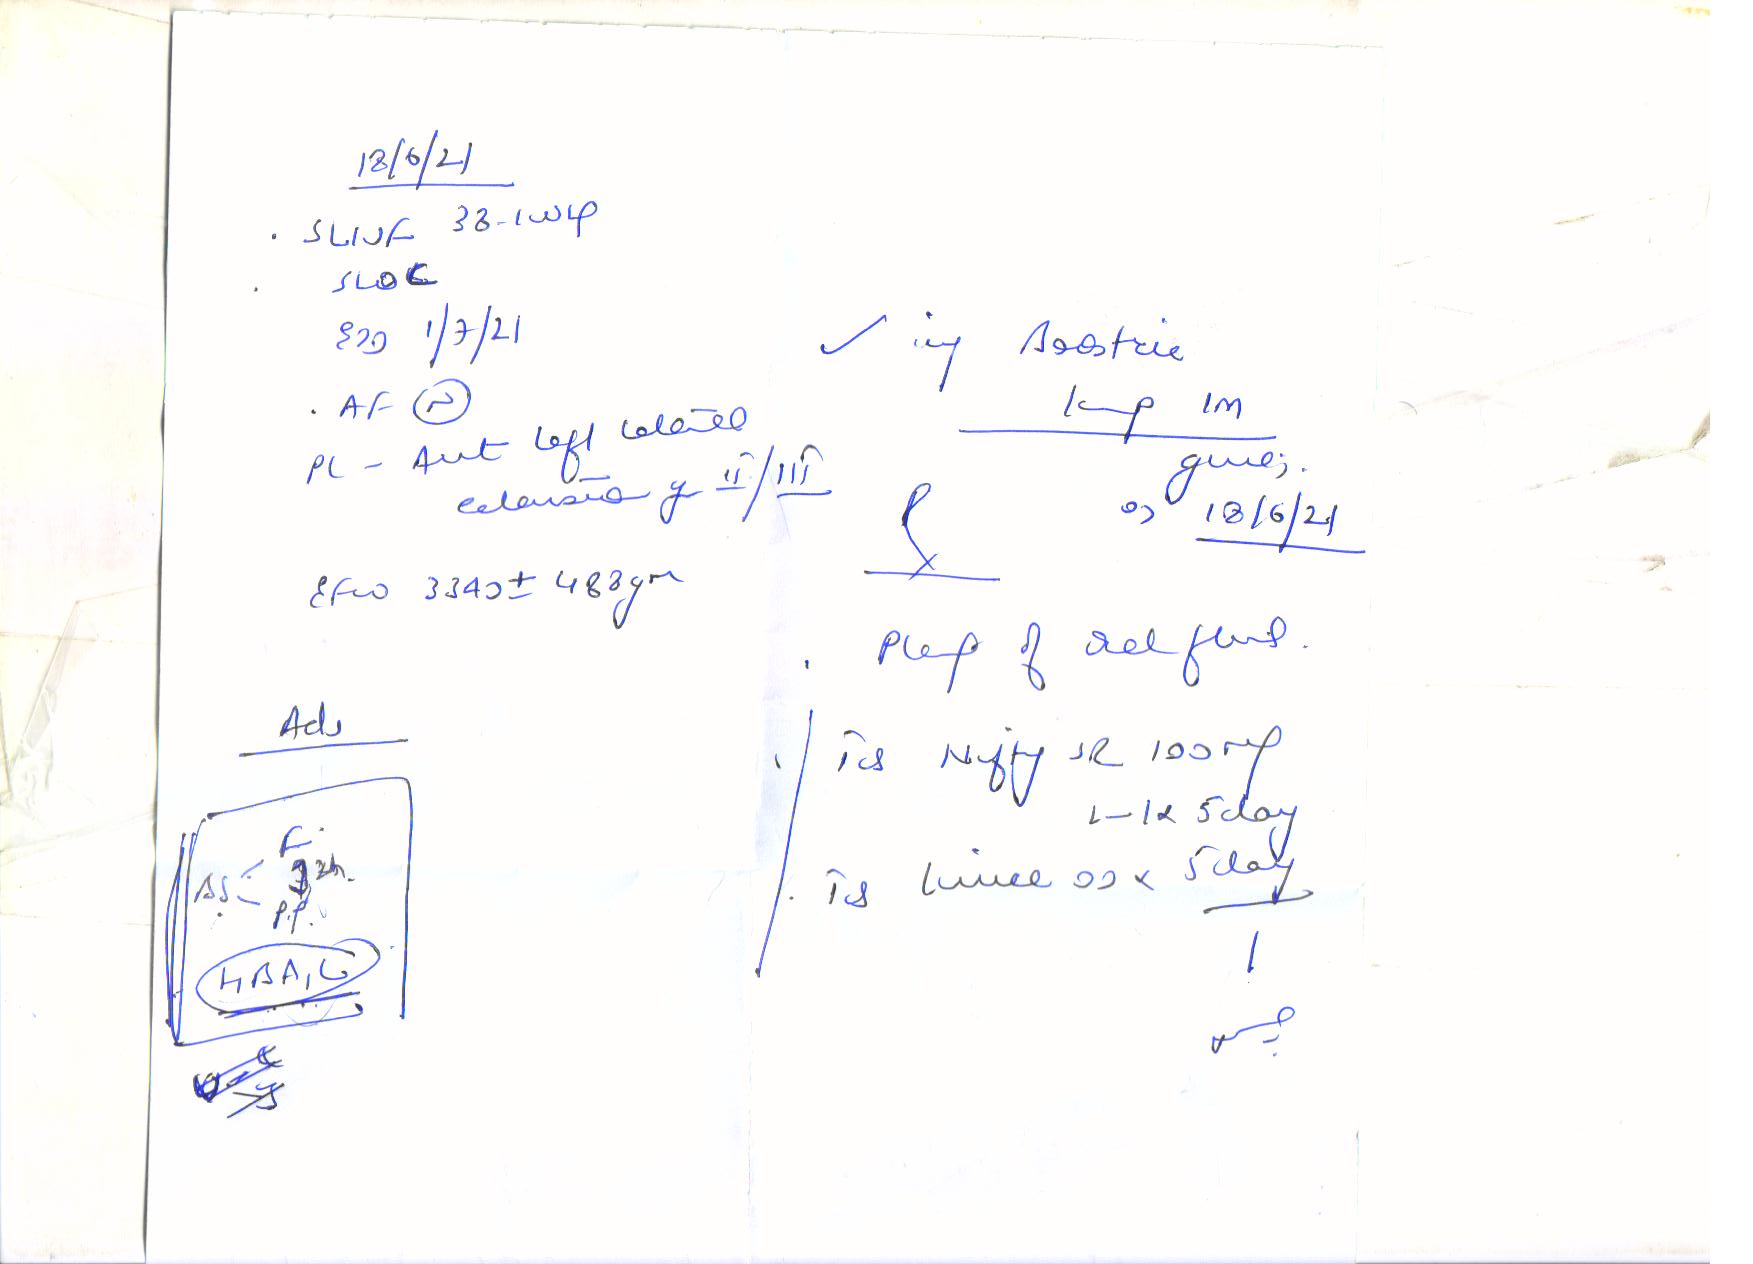 18/6/21
. SLIUF 38-1wk
. SLOC
EDD 1/7/21
. AF (N)
PL - Ant left lateral
extension gr II/III
EFW 3340 ± 488gm
Adv
BS < F
2h.
P.P.
HBA1C
✓ inj Boostrix
1amp IM
given.
on 18/6/21
Rx
. Plenty of oral fluid.
. Tab Nifty SR 100mg
1-1 x 5day
. Tab OD x 5day